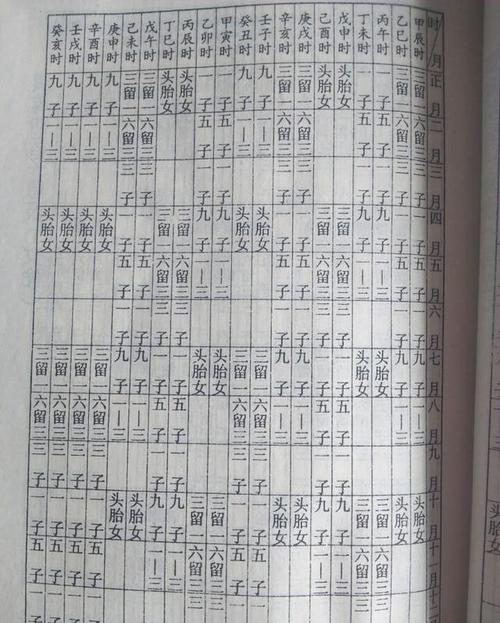 时 月 正月 二月 三月 四月 五月 六月 七月 八月 九月 十月 十一月 十二
甲辰时 三留一 六留三 三子 一子 五子 一子 九子 一—三 头胎女
乙巳时 三留一 六留三 三子 一子 五子 一子 九子 一—三 头胎女
丙午时 一子 五子 一子 九子 一—三 头胎女 三留一 六留三 三
丁未时 一子 五子 一子 九子 一—三 头胎女 三留一 六留三 三
戊申时 头胎女 三留一 六留三 三子 一子 五子 一子 九子 一—三
己酉时 头胎女 三留一 六留三 三子 一子 五子 一子 九子 一—三
庚戌时 三留一 六留三 三子 一子 五子 一子 九子 一—三 头胎女
辛亥时 三留一 六留三 三子 一子 五子 一子 九子 一—三 头胎女
壬子时 九子 一—三 头胎女 三留一 六留三 三子 一子 五子 一子
癸丑时 九子 一—三 头胎女 三留一 六留三 三子 一子 五子 一子
甲寅时 一子 五子 一子 九子 一—三 头胎女 三留一 六留三 三
乙卯时 一子 五子 一子 九子 一—三 头胎女 三留一 六留三 三
丙辰时 头胎女 三留一 六留三 三子 一子 五子 一子 九子 一—三
丁巳时 头胎女 三留一 六留三 三子 一子 五子 一子 九子 一—三
戊午时 三留一 六留三 三子 一子 五子 一子 九子 一—三 头胎女
己未时 三留一 六留三 三子 一子 五子 一子 九子 一—三 头胎女
庚申时 九子 一—三 头胎女 三留一 六留三 三子 一子 五子 一子
辛酉时 九子 一—三 头胎女 三留一 六留三 三子 一子 五子 一子
壬戌时 九子 一—三 头胎女 三留一 六留三 三子 一子 五子 一子
癸亥时 九子 一—三 头胎女 三留一 六留三 三子 一子 五子 一子